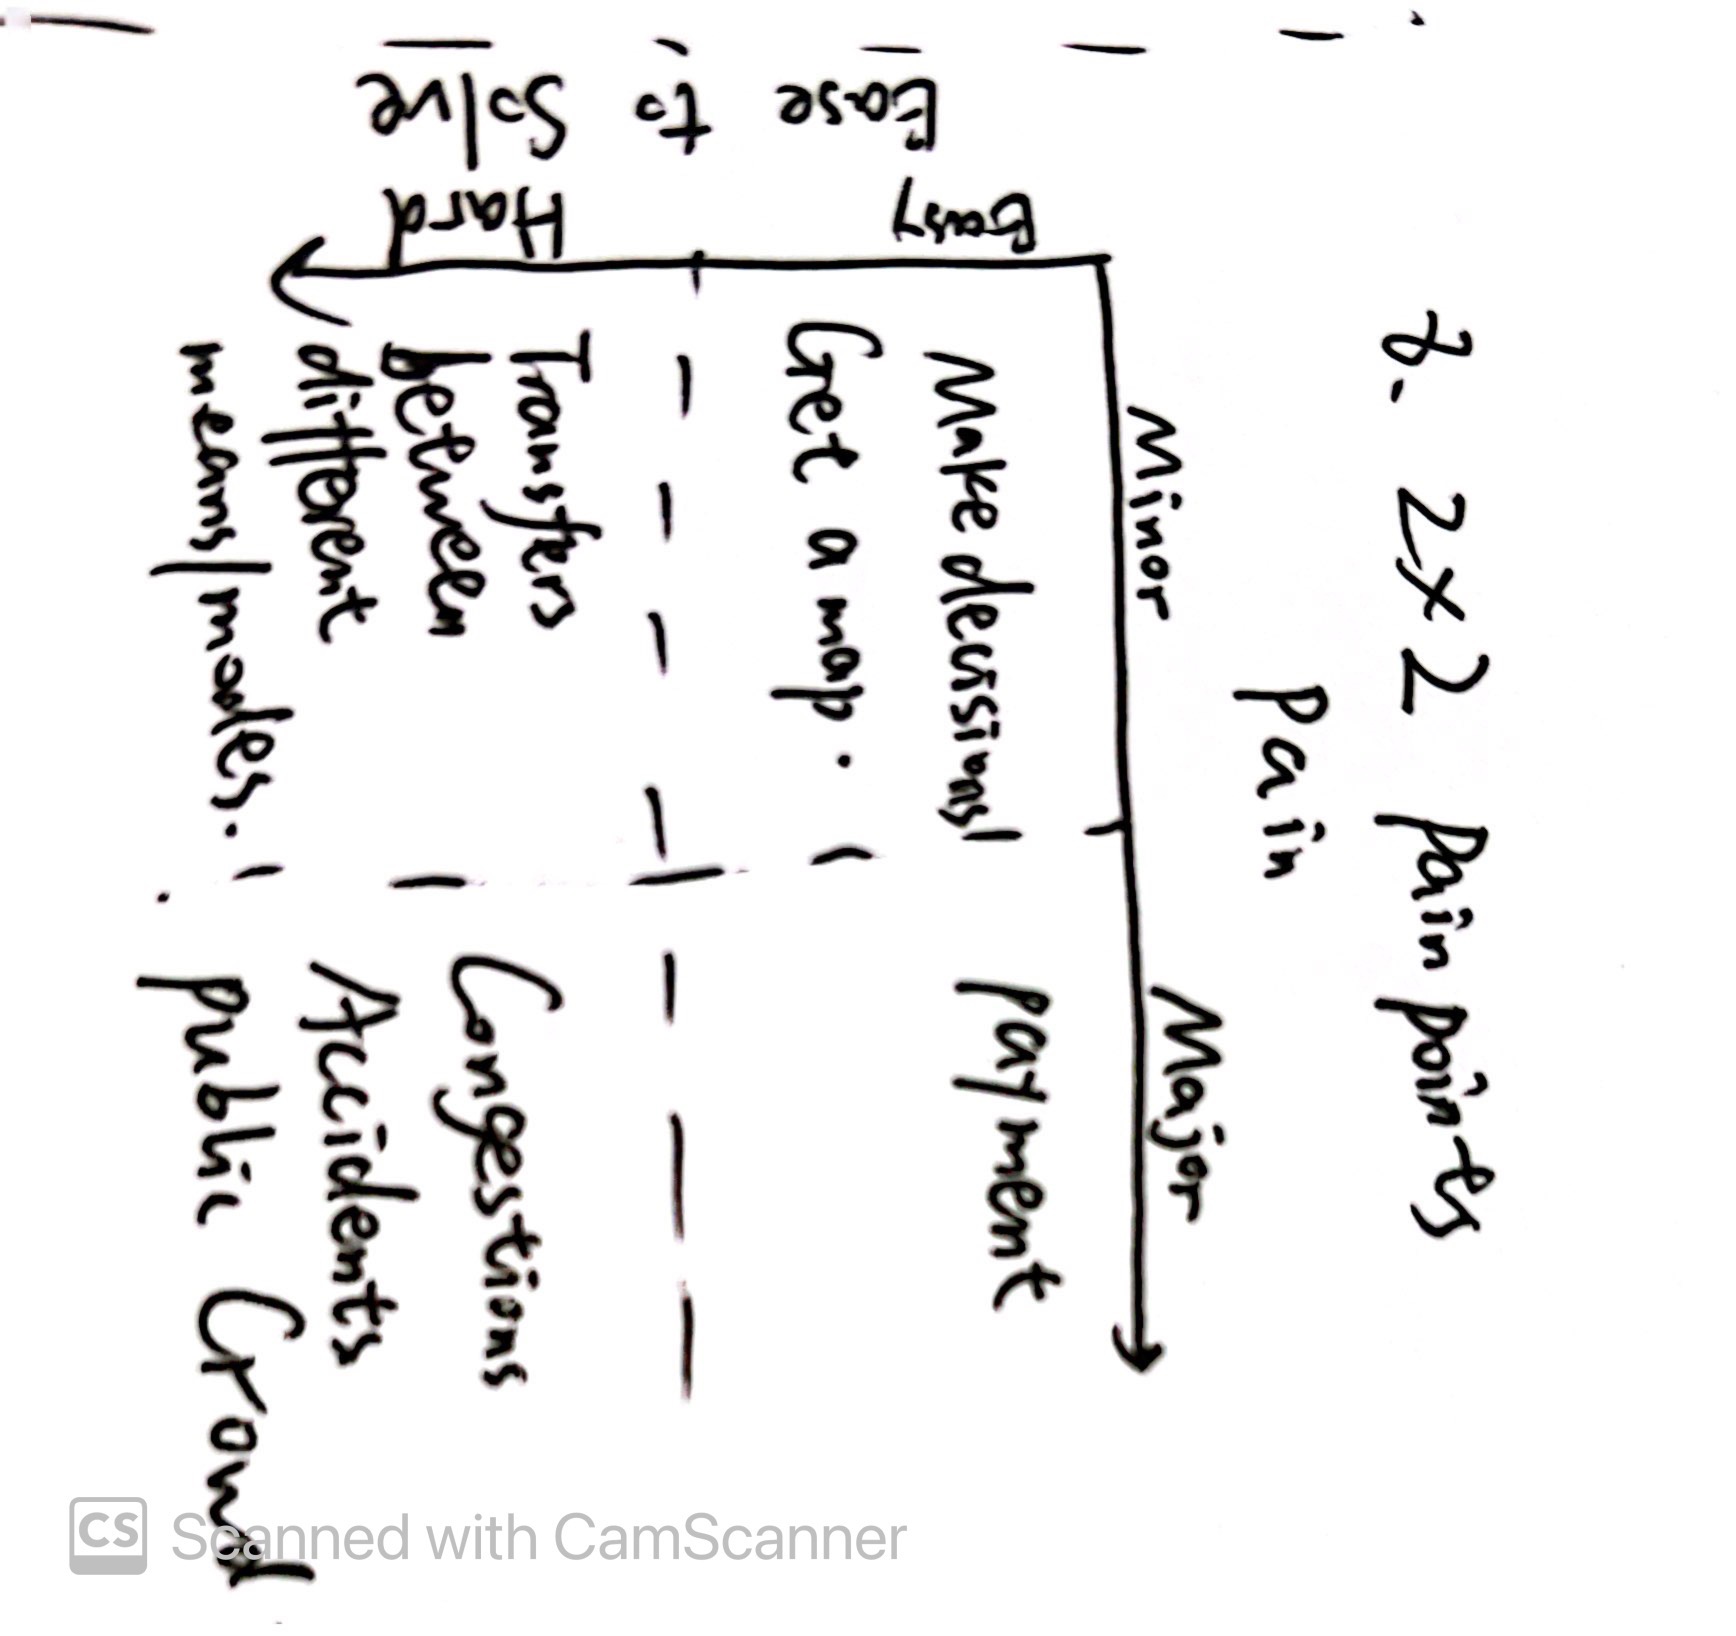 7. 2x2 Pain points
Pain
Minor
Major
Ease to Solve
Easy
Hard
Make decisions/
Get a map.
Payment
Transfers
between
different
means/modes.
Congestions
Accidents
Public Crowd
CS Scanned with CamScanner